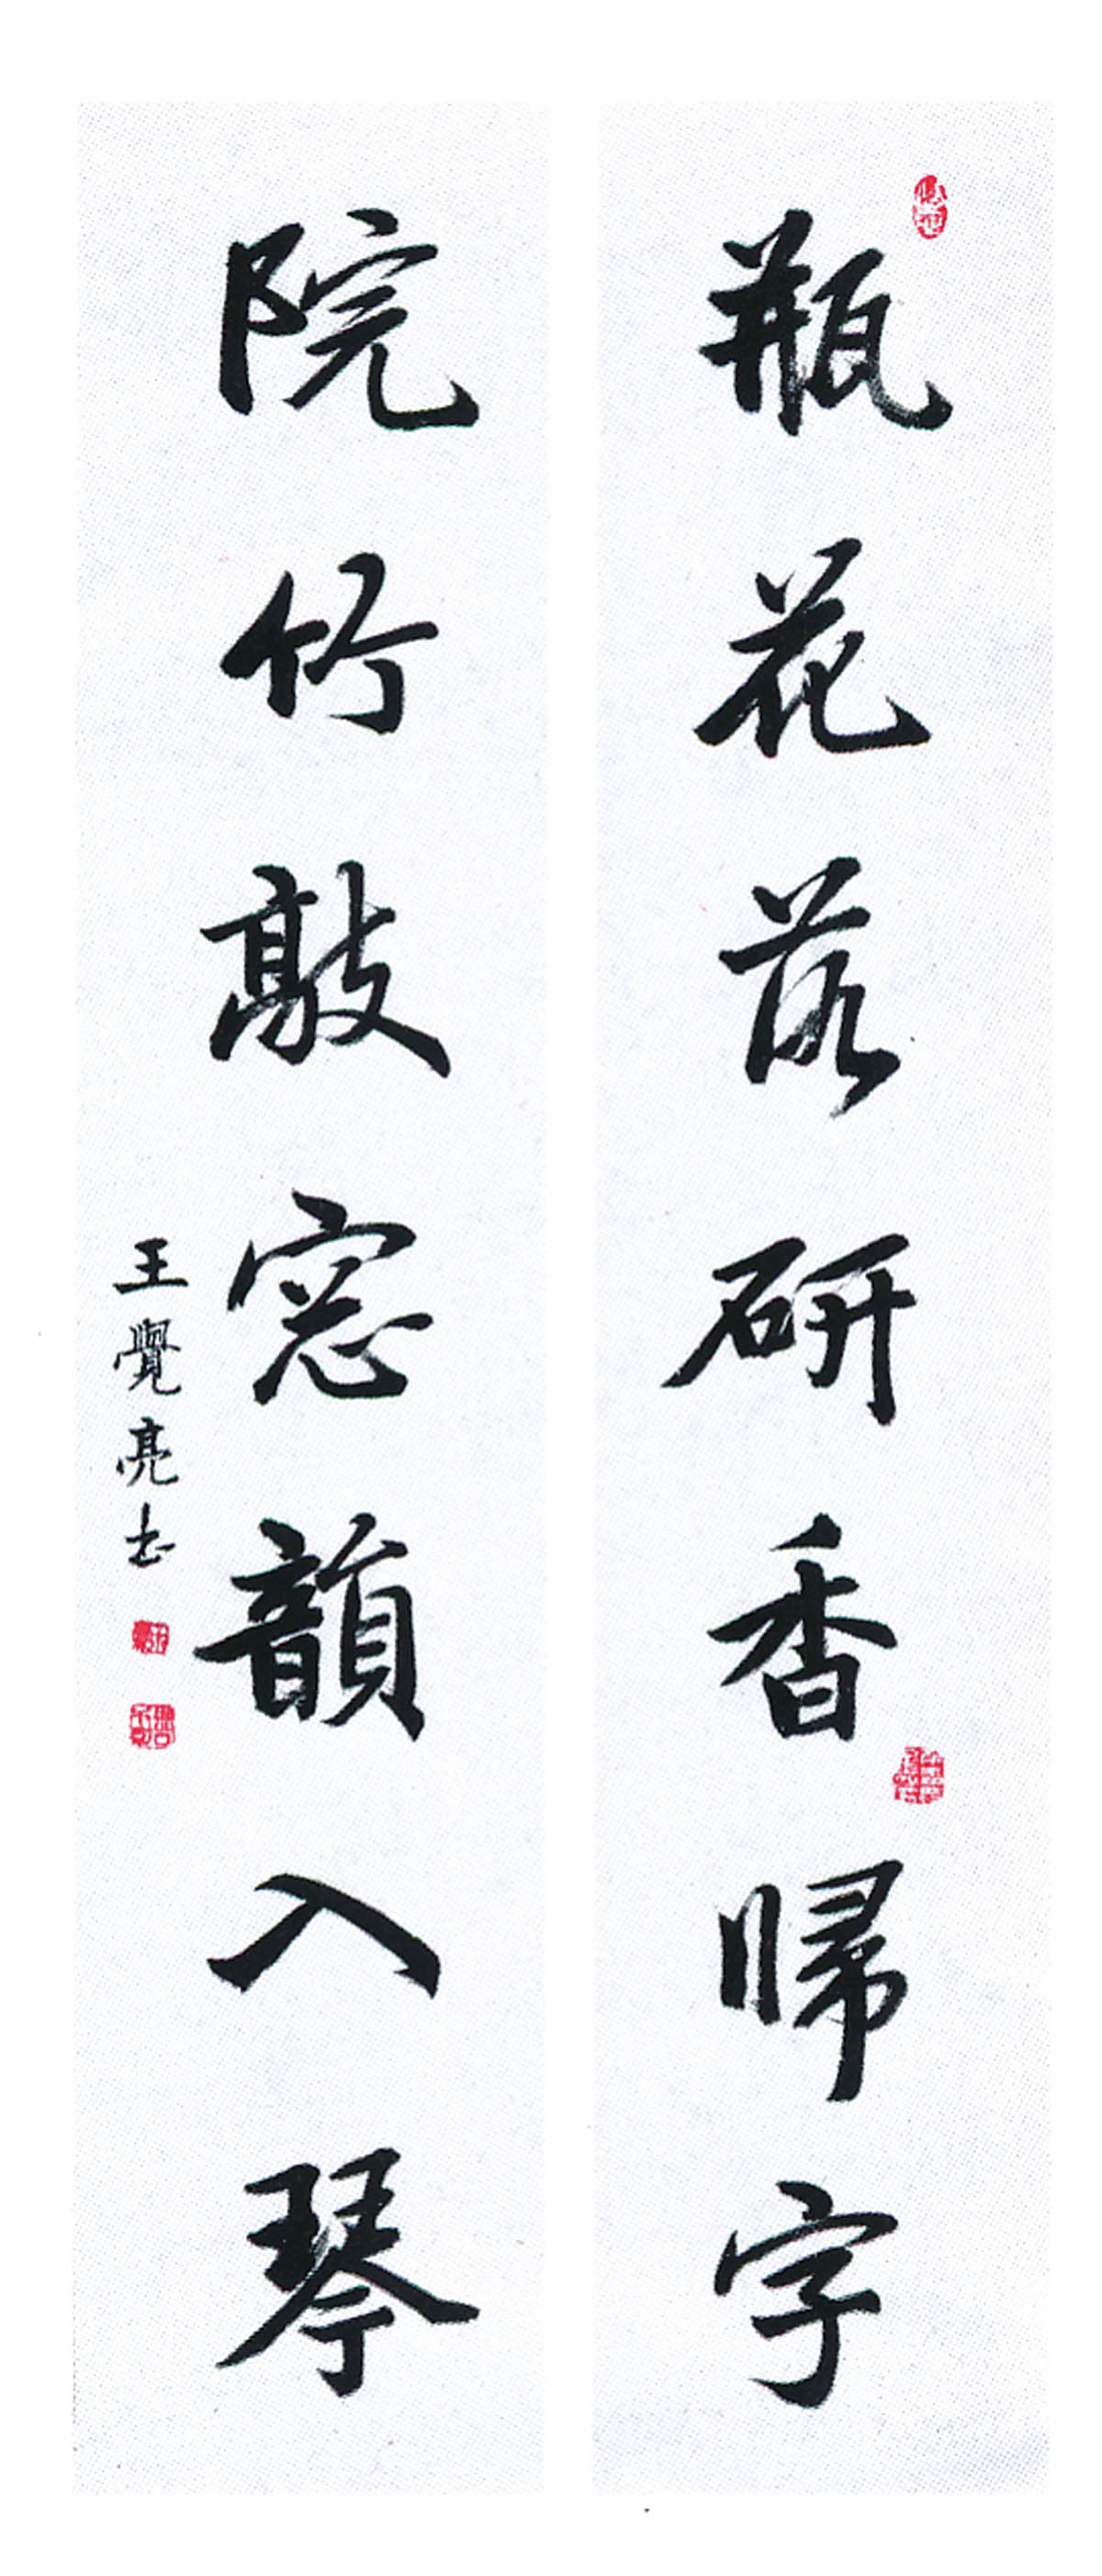 瓶花落研香歸字
院竹敲窓韻入琴
王覺亮书